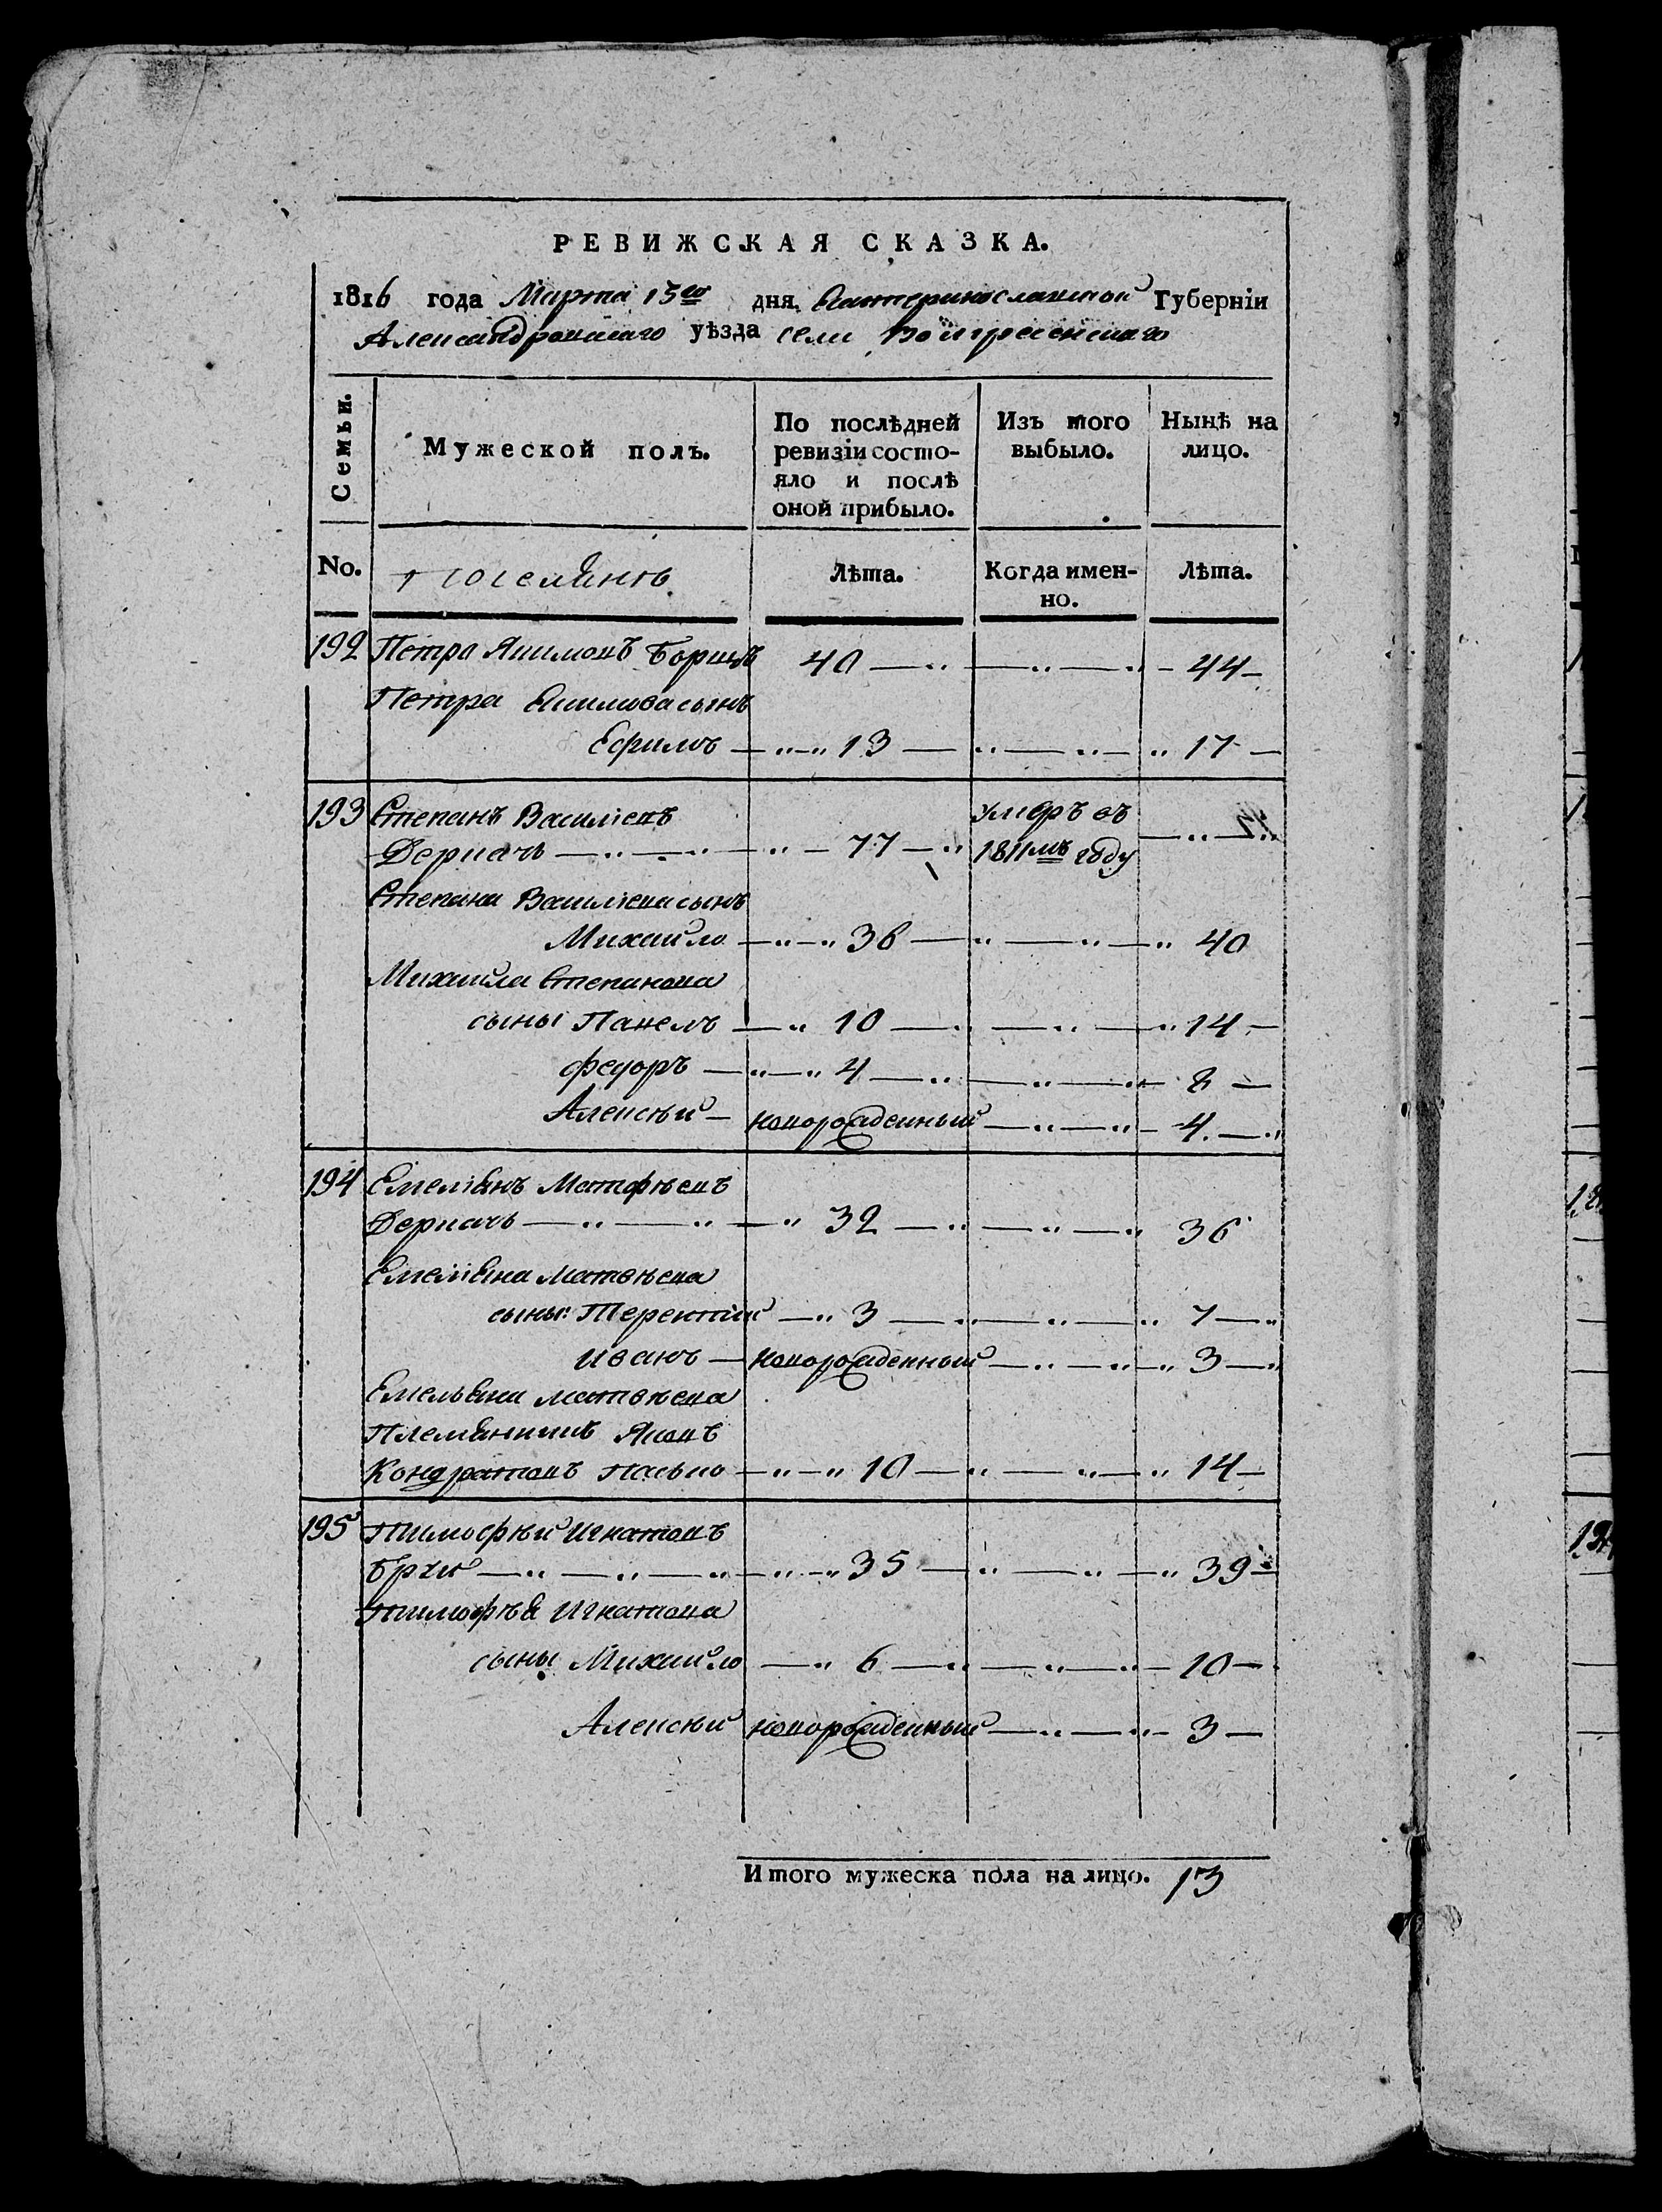 РЕВИЖСКАЯ СКАЗКА.
1816 года Марта 15го дня Екатеринославской Губерніи
Александровскаго уѣзда села Воскресенскаго
Семьи.
Мужеской полъ.
По послѣдней ревизіи состояло и послѣ оной прибыло.
Изъ того выбыло.
Нынѣ на лицо.
No. поселянъ Лѣта. Когда именно. Лѣта.
192 Петра Якимовъ Борщъ 40 44
Петра Якимова сынъ
Ефимъ 13 17
193 Степанъ Василіевъ Умеръ въ
Деркачъ 77 1811мъ году
Степана Василіева сынъ
Михайло 36 40
Михаила Степанова
сыны Павелъ 10 14
Федоръ 4 8
Алексѣй новорожденный 4
194 Емеліянъ Матфѣевъ
Деркачъ 32 36
Емеліяна Матвѣева
сыны: Терентій 3 7
Иванъ новорожденный 3
Емельяна Матвѣева
Племянникъ Яковъ
Кондратовъ Пасько 10 14
195 Тимофѣй Игнатовъ
35 39
Тимофѣя Игнатова
сыны Михайло 6 10
Алексѣй новорожденный 3
Итого мужеска пола на лицо. 13